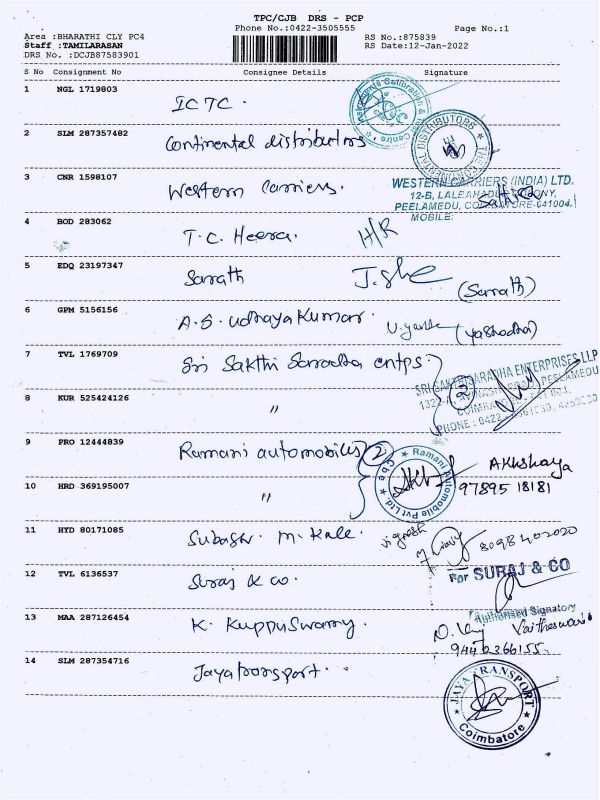 TPC/CJB DRS - PCP
Phone No.:0422-3505555
Page No.:1
Area :BHARATHI CLY PC4
RS No.:875839
Staff :TAMILARASAN
RS Date:12-Jan-2022
DRS No. :DCJB87583901
S No Consignment No Consignee Details Signature
1 NGL 1719803 ICTC.
2 SLM 287357482 Continental distributors
THE CONTINENTAL DISTRIBUTORS
3 CNR 1598107 Western Carriers.
WESTERN CARRIERS (INDIA) LTD.
12-B, LALBAHADUR COLONY,
PEELAMEDU, COIMBATORE-641004.
MOBILE:
4 BOD 283062 T.C. Heera. H/R
5 EDQ 23197347 Sarath
(Sarrath)
6 GPM 5156156 A.S. udhayakumar.
(yashodha)
7 TVL 1769709 Sri Sakthi Sarradha entps.
SRI SAKTHI SARADHA ENTERPRISES LLP
8 KUR 525424126 "
2
9 PRO 12444839 Ramani automobiles 2
Ramani Automobile Pvt Ltd. Cbe
Akkshaya
10 HRD 369195007 "
97895 18181
11 HYD 80171085 Subash. M. Kale.
vignesh
8098402020
12 TVL 6136537 Suraj & co.
For SURAJ & CO
Authorised Signatory
13 MAA 287126454 K. Kuppuswamy.
Vaitheswari
14 SLM 287354716 Jayatransport.
JAYA TRANSPORT
Coimbatore